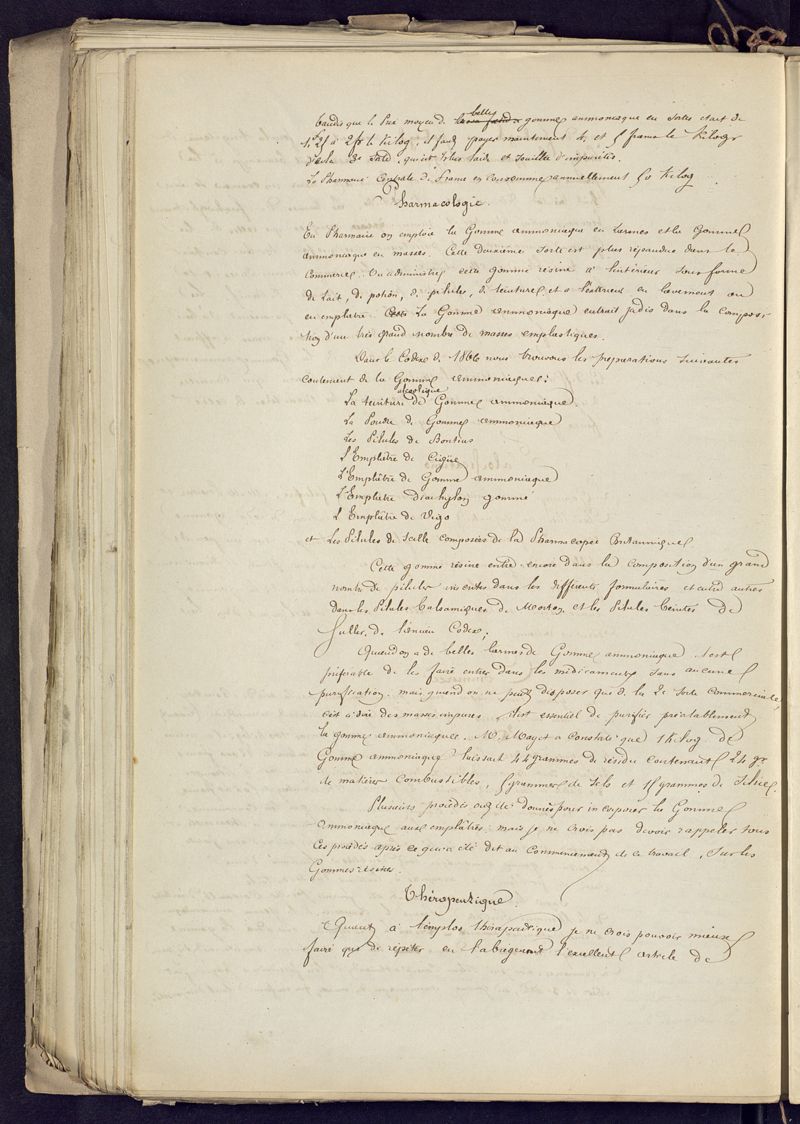 tandis que le Prix moyen de belles gomme ammoniaque en sortes était de
à 2f le Kilog, il faut payer maintenant 4 et 5 francs le Kilogr
et souillée d'impuretés.
La Pharmacie Centrale de France en consomme annuellement 50 Kilog
Pharmacologie.
En Pharmacie on emploie la Gomme ammoniaque en Larmes et la Gomme
ammoniaque en masses. Cette deuxième sorte est plus répandue dans le
Commerce. On administre cette gomme résine à l'intérieur sous forme
de Lait, de potion, de pilules, de teinture et à l'extérieur en lavement ou
en emplatre. La Gomme ammoniaque entrait jadis dans la composi-
tion d'un très grand nombre de masses emplastiques.
Dans le Codex de 1866 nous trouvons les préparations suivantes
contenant de la Gomme ammoniaque:
La teinture alcoolique de Gomme ammoniaque
La Poudre de Gomme ammoniaque
Les Pilules de Bontius
L'Emplâtre de Cigüe
L'Emplâtre de Gomme ammoniaque
L'Emplatre Diachylon gommé
L'Emplâtre de Vigo
et Les Pilules de Scille composées de la Pharmacopée Britannique
Cette gomme résine entre encore dans la composition d'un grand
nombre de pilules inscrites dans les différents formulaires et entre autres
dans les Pilules balsamiques de Morton, et les Pilules bénites de
Fuller, de l'ancien Codex;
Quand on a de belles larmes de Gomme ammoniaque il est
préférable de les faire entrer dans les médicaments sans aucune
purification. mais quand on ne peut disposer que de la 2e sorte commerciale,
c'est à dire des masses impures, il est essentiel de purifier préalablement
la gomme ammoniaque. M. Mayet a constaté que 1 Kilog de
Gomme ammoniaque laissait 44 grammes de résidu contenant 24 gr
de matières combustibles, 5 grammes de sels et 15 grammes de silice.
Plusieurs procédés ont été donnés pour incorporer la Gomme
ammoniaque aux emplâtres. mais je ne crois pas devoir rappeler tous
ces procédés après ce qui a été dit au commencement de ce travail, sur les
Gommes-résines.
Thérapeutique.
Quant à l'emploi thérapeutique je ne crois pouvoir mieux
faire que de répéter en l'abrégeant l'excellent article de